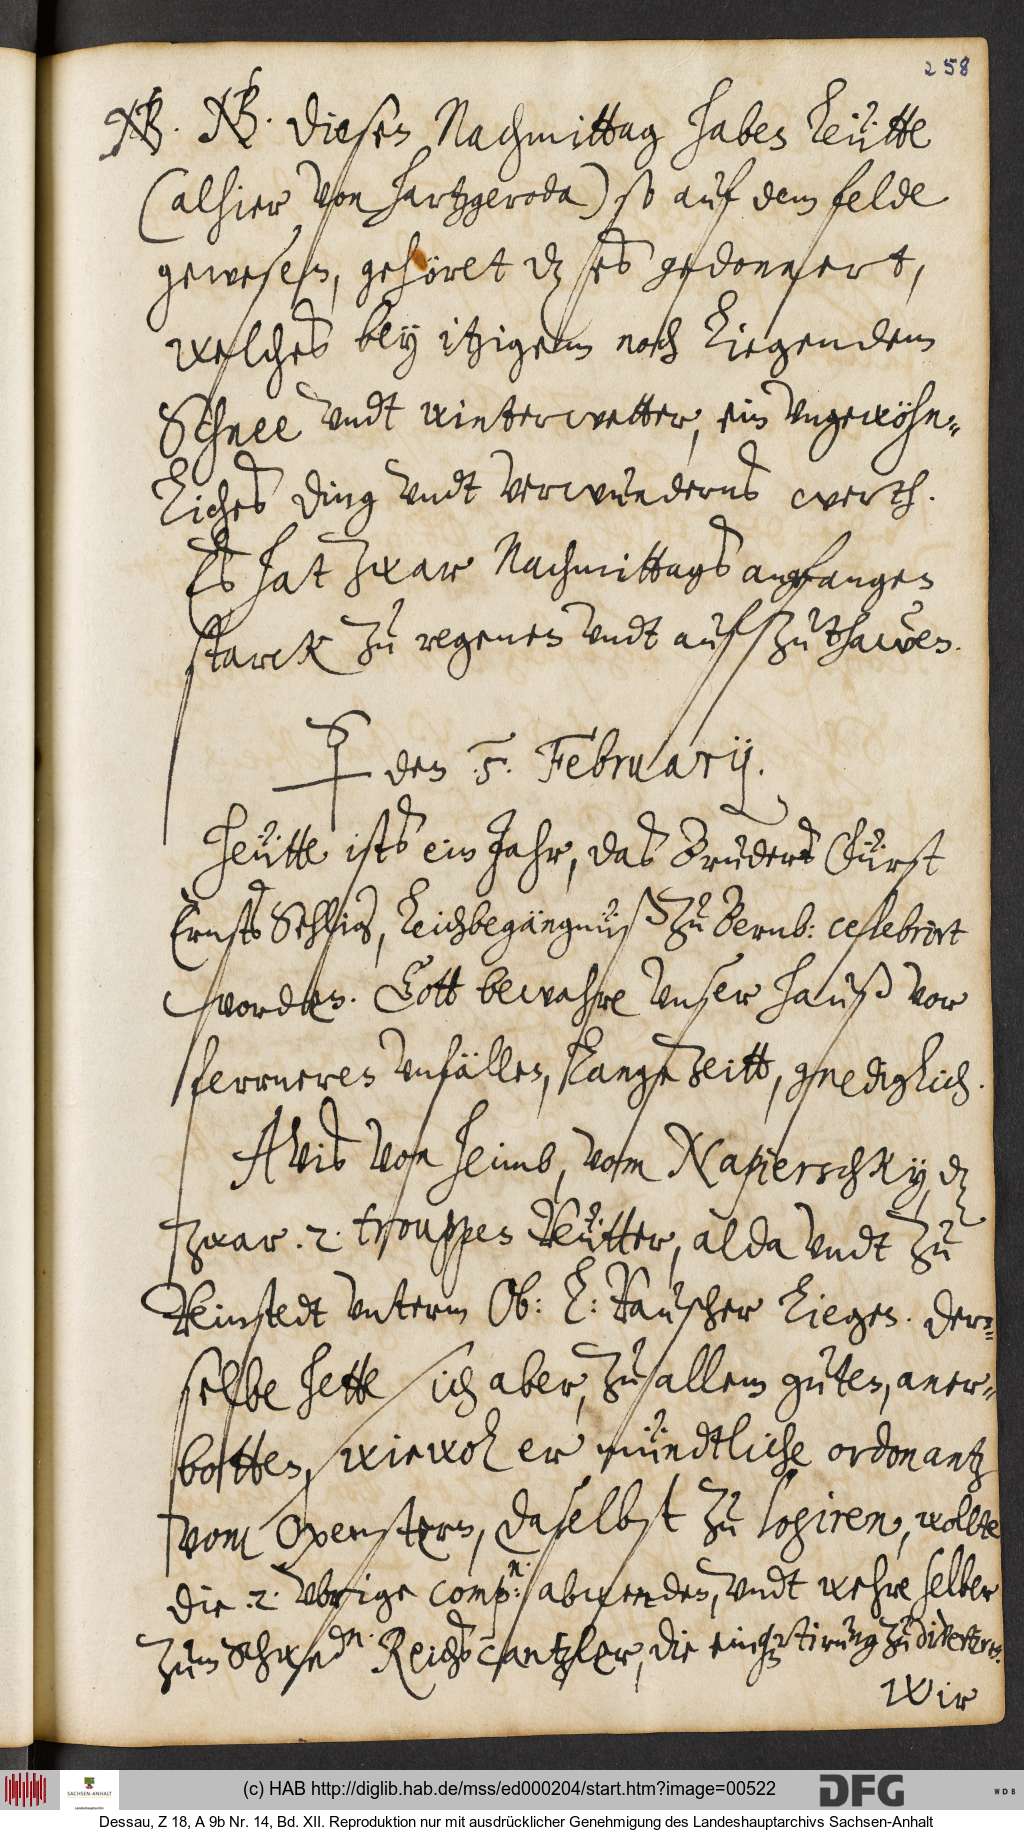 258
NB. NB. Diesen Nachmittag haben leütte
(alhier von Hartzgeroda) so auf dem felde
gewesen, gehöret dz es gedonnert,
welches bey itzigem noch liegendem
Schnee undt winterwetter, ein ungewöhn=
liches ding undt verwunderns werth.
Es hat zwar Nachmittags angefangen
starck zu regenen undt aufzuthawen.
den .5. Februarij.
Heütte ists ein Jahr, das Bruders Fürst
Ernsts Sehligs, Leichbegängnüß zu Bernb: celebrirt
worden. Gott bewahre unser hauß vor
ferrneren unfällen, lange zeitt, gnediglich.
Avis von Heimb, vom Napierschky, dz
zwar .2. trouppen Reütter, alda undt zu
Reinstedt unterm Ob: L: Rauscher liegen. Der=
selbe hette sich aber, zu allem guten, aner=
botten, wiewol er mündtliche ordonantz
vom Oxenstern, daselbst zu logiren, wollte
die .2. übrige comp.n: abwenden, undt wehre selber
zum Schwedn. Reichs Cantzler, die einq[uar]tirung zu divertiren.
Wir
(c) HAB http://diglib.hab.de/mss/ed000204/start.htm?image=00522
SACHSEN-ANHALT
Landeshauptarchiv
DFG
WDB
Dessau, Z 18, A 9b Nr. 14, Bd. XII. Reproduktion nur mit ausdrücklicher Genehmigung des Landeshauptarchivs Sachsen-Anhalt